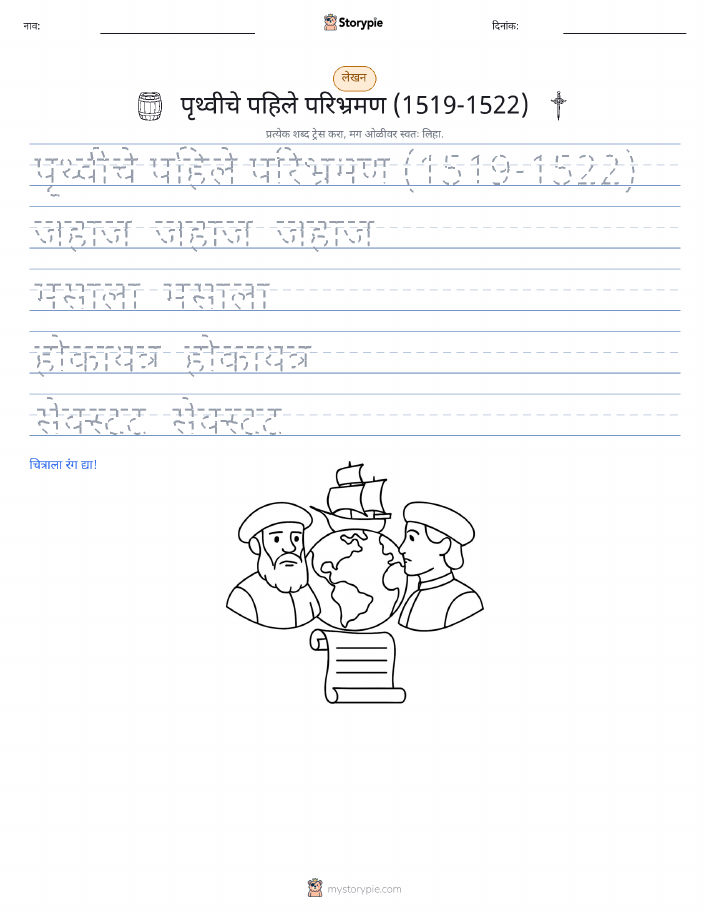 नाव:
Storypie
दिनांक:
लेखन
पृथ्वीचे पहिले परिभ्रमण (1519-1522)
प्रत्येक शब्द ट्रेस करा, मग ओळीवर स्वतः लिहा.
पृथ्वीचे पहिले परिभ्रमण (1519-1522)
जहाज जहाज जहाज
मसाला मसाला
होकायत्र होकायत्र
चित्राला रंग द्या!
mystorypie.com